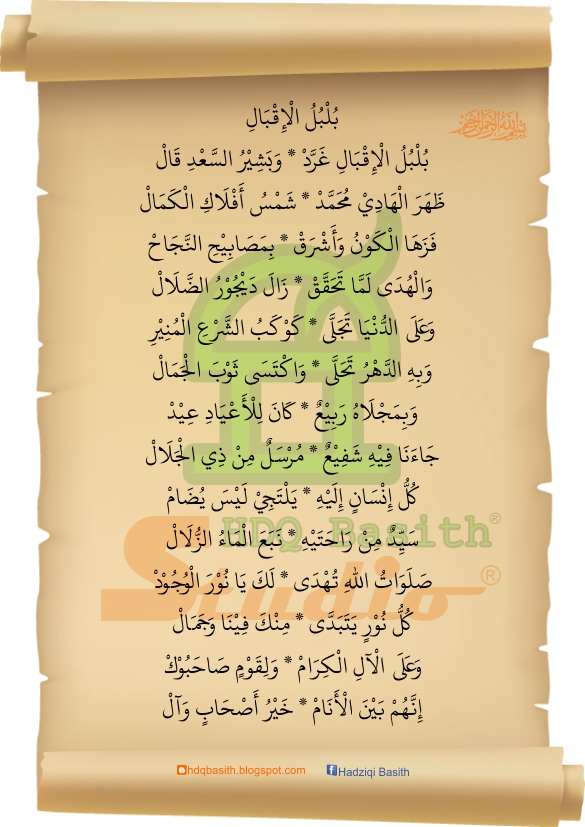 بُلْبُلُ الْإِقْبَالِ
بِسْمِ اللهِ الرَّحْمٰنِ الرَّحِيْمِ
بُلْبُلُ الْإِقْبَالِ غَرَّدْ * وَبَشِيْرُ السَّعْدِ قَالْ
ظَهَرَ الْهَادِيْ مُحَمَّدْ * شَمْسُ أَفْلَاكِ الْكَمَالْ
فَزَهَا الْكَوْنُ وَأَشْرَقْ * بِمَصَابِيْحِ النَّجَاحْ
وَالْهُدَى لَمَّا تَحَقَّقْ * زَالَ دَيْجُوْرُ الضَّلَالْ
وَعَلَى الدُّنْيَا تَجَلَّى * كَوْكَبُ الشَّرْعِ الْمُنِيْرِ
وَبِهِ الدَّهْرُ تَحَلَّى * وَاكْتَسَى ثَوْبَ الْجَمَالْ
وَبِمَجْلَاهُ رَبِيْعٌ * كَانَ لِلْأَعْيَادِ عِيْدْ
جَاءَنَا فِيْهِ شَفِيْعٌ * مُرْسَلٌ مِنْ ذِي الْجَلَالْ
كُلُّ إِنْسَانٍ إِلَيْهِ * يَلْتَجِيْ لَيْسَ يُضَامْ
سَيِّدٌ مِنْ رَاحَتَيْهِ * نَبَعَ الْمَاءُ الزُّلَالْ
صَلَوَاتُ اللهِ تُهْدَى * لَكَ يَا نُوْرَ الْوُجُوْدْ
كُلُّ نُوْرٍ يَتَبَدَّى * مِنْكَ فِيْنَا وَجَمَالْ
وَعَلَى الْآلِ الْكِرَامْ * وَلِقَوْمٍ صَاحَبُوْكْ
إِنَّهُمْ بَيْنَ الْأَنَامْ * خَيْرُ أَصْحَابٍ وَآلْ
HDQ Basith®
Studio®
hdqbasith.blogspot.com
Hadziqi Basith